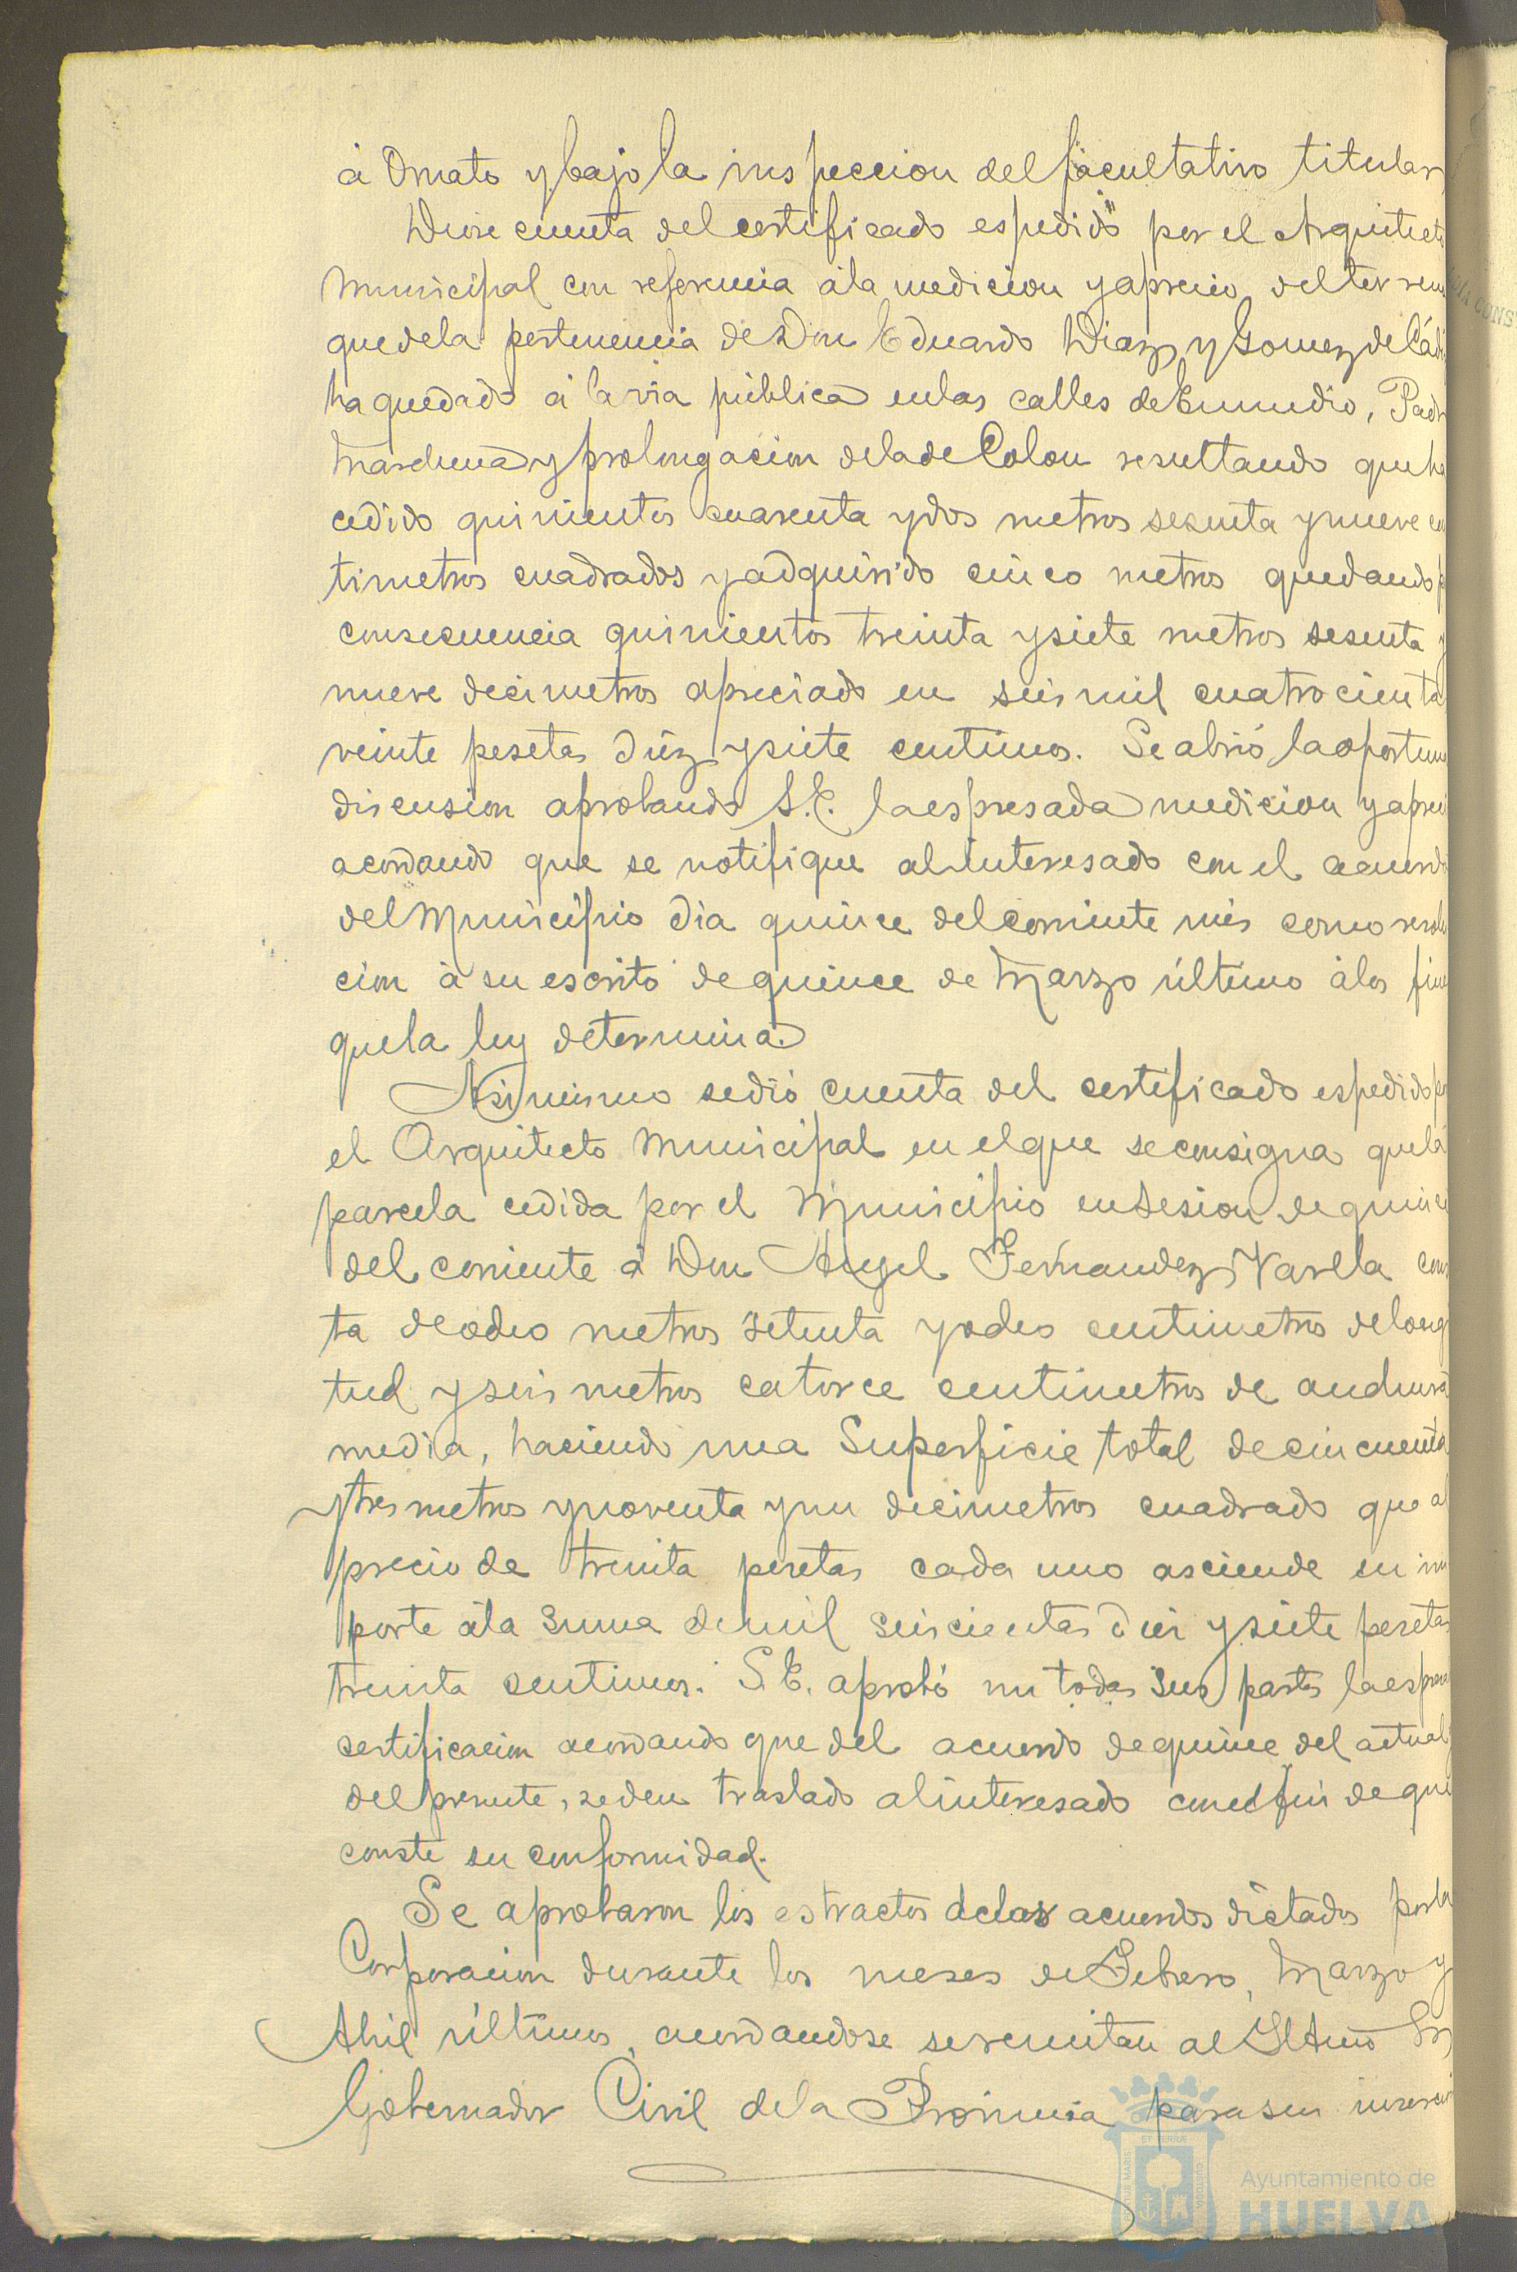 á Ornato y bajo la inspeccion del facultativo titular
Diose cuenta del certificado espedido por el Arquitecto
Municipal con referencia á la medicion y aprecio del terreno
que de la pertenencia de Don Eduardo Diaz y Gomez de Cádiz
ha quedado á la via pública en las calles de, Padre
Marchena y prolongacion de la de Colon resultando que ha
cedido quinientos cuarenta y dos metros sesenta y nueve cen
timetros cuadrados y adquirido cinco metros quedando p
consecuencia quinientos treinta y siete metros sesenta y
nueve decimetros apreciado en seis mil cuatrocienta
veinte pesetas diez y siete centimos. Se abrió la oportuna
discusion aprobando S.E. la espresada medicion y apreci
acordando que se notifique al interesado con el acuerdo
del Municipio dia quince del corriente mes como resolu
cion á su escrito de quince de Marzo último á los fines
que la ley determina.
Asimismo se dió cuenta del certificado espedido por
el Arquitecto Municipal en el que se consigna que la
parcela cedida por el Municipio en sesion de quince
del corriente á Don Angel Fernandez Varela cons
ta de ocho metros setenta y ocho centimetros de longi
tud y seis metros catorce centimetros de anchura
media, haciendo una Superficie total de cincuenta
y tres metros y noventa y un decimetros cuadrado que al
precio de treinta pesetas cada uno asciende su im
porte á la suma de mil seiscientas diez y siete pesetas
treinta centimos. S.E. aprobó en todas sus partes la espresa
certificacion acordando que del acuerdo de quince del actual y
del presente, se den traslado al interesado con el fin de que
conste su conformidad.
Se aprobaron los estractos de los acuerdos dictados por la
Corporacion durante los meses de Febrero, Marzo y
Abril últimos, acordandose se remitan al Iltmo Sr
Gobernador Civil de la Provincia para su insercion
Ayuntamiento de
HUELVA